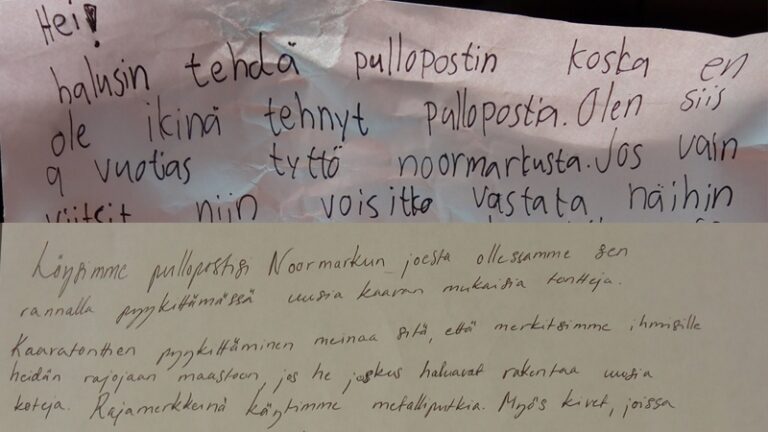 Hei!
halusin tehdä pullopostin koska en
ole ikinä tehnyt pullopostia. Olen siis
9 vuotias tyttö noormarkusta. Jos vain
viitsit niin voisitko vastata näihin
Löysimme pullopostisi Noormarkun joesta ollessamme sen
rannalla pyykittämässä uusia kaavan mukaisia tontteja.
Kaavatonttien pyykittäminen meinaa sitä, että merkitsimme ihmisille
heidän rajojaan maastoon, jos he joskus haluavat rakentaa uusia
koteja. Rajamerkkeinä käytimme metalliputkia. Myös kivet, joissa